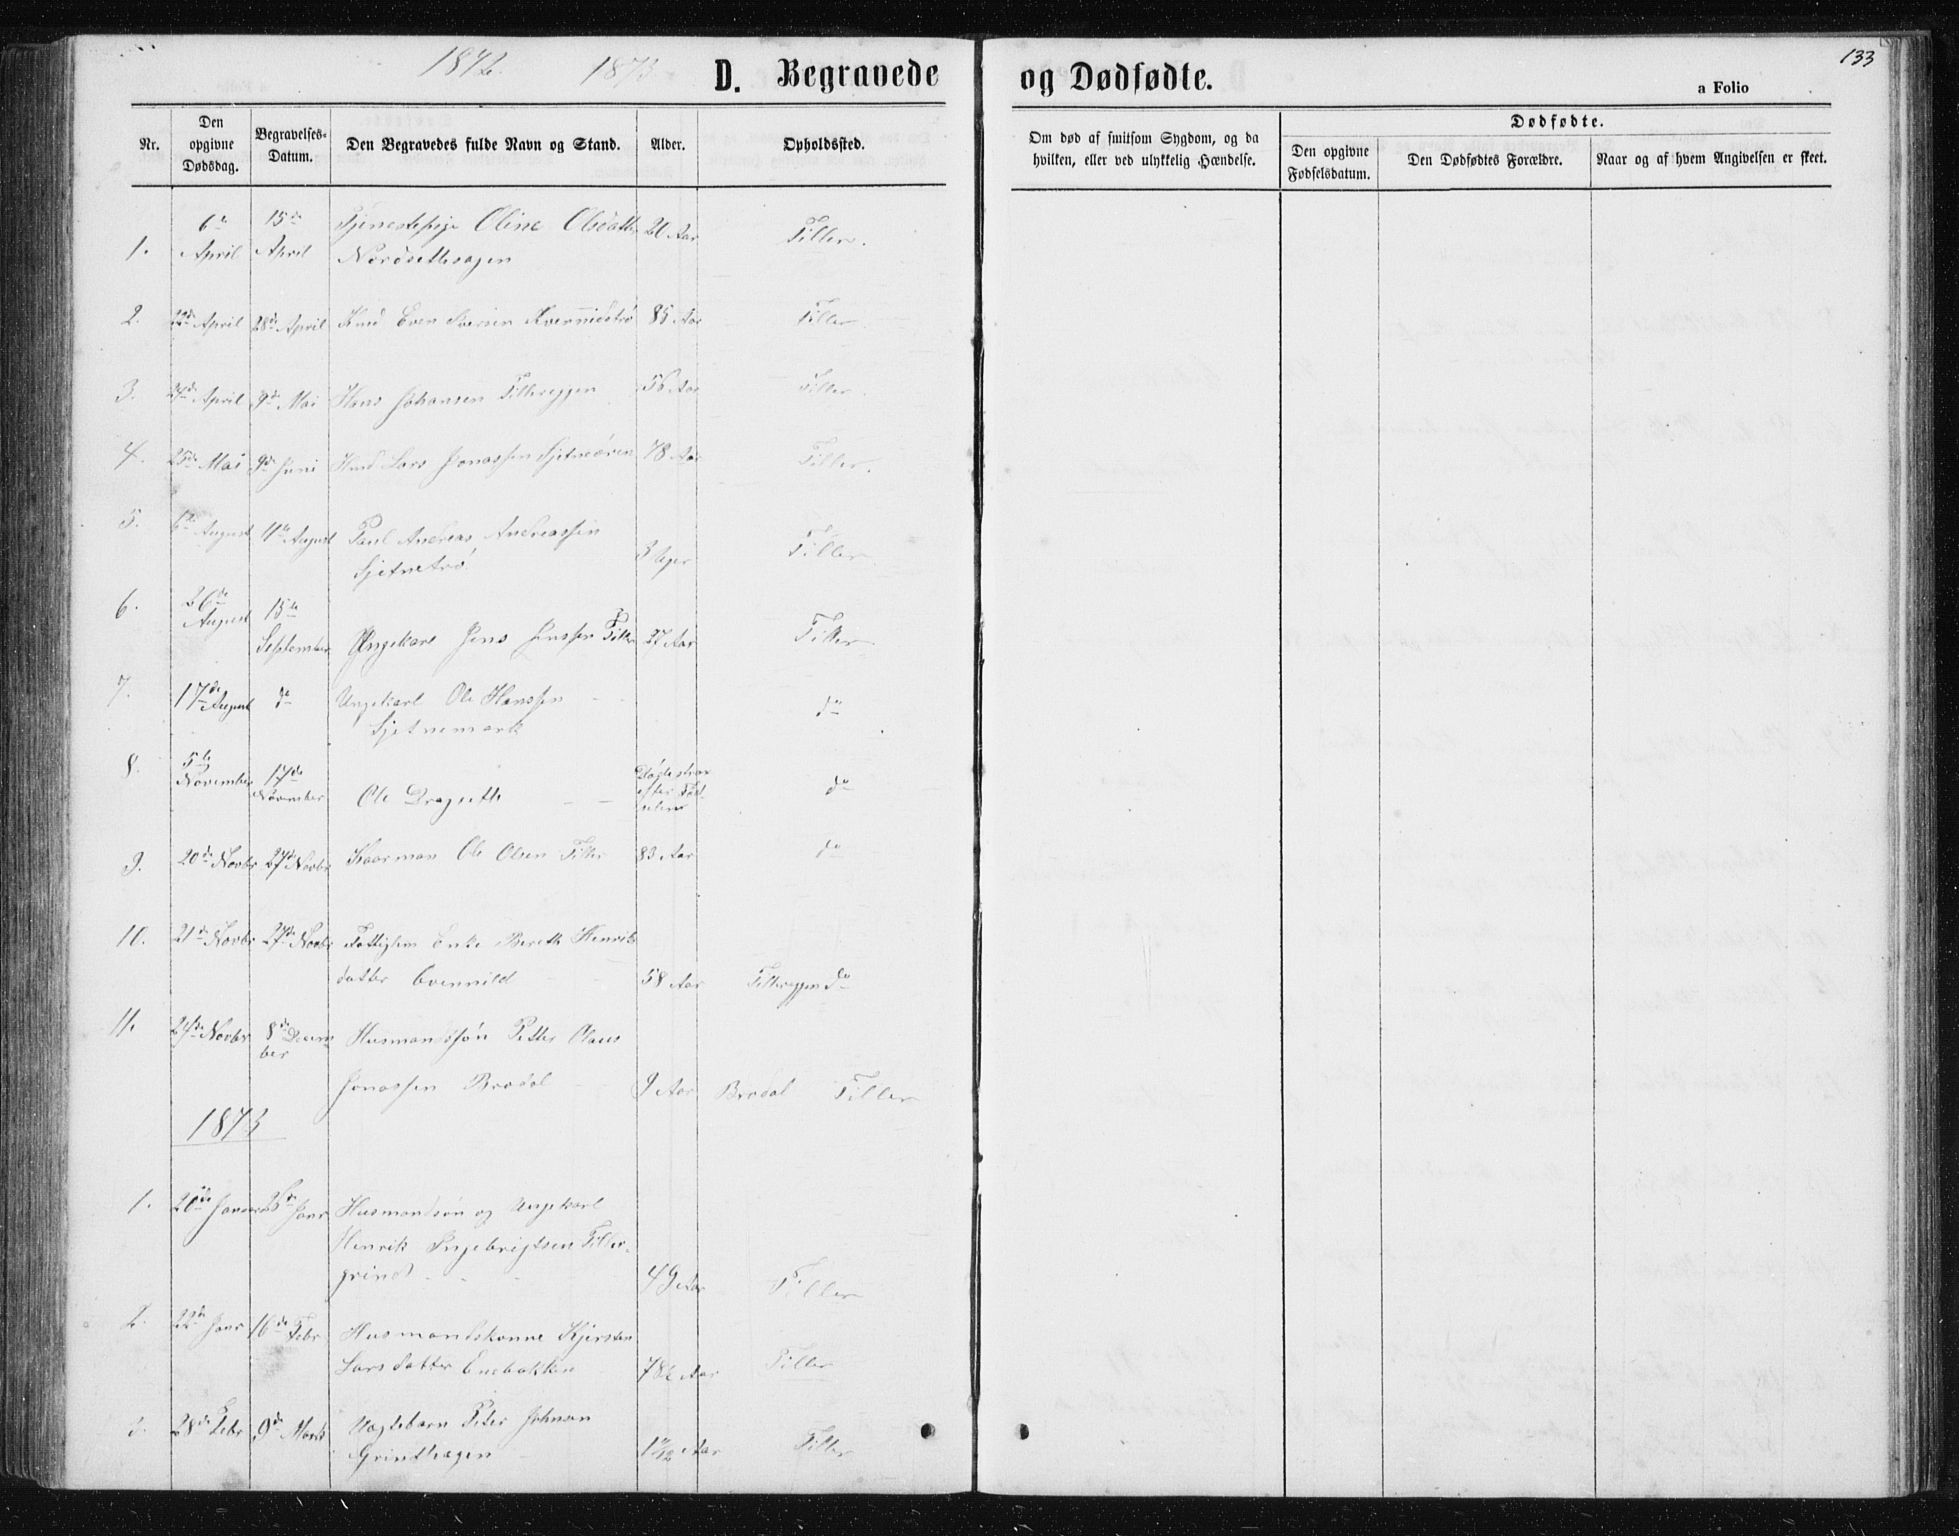 1872. 1873. D. Begravede og Dødfødte. 133
a Folio
Nr. Den opgivne Dødsdag. Begravelses-Datum. Den Begravedes fulde Navn og Stand. Alder. Opholdssted. Om død af smitsom Sygdom, og da hvilken, eller ved ulykkelig Hændelse. Dødfødte.
Den opgivne Fødselsdatum. Den Dødfødtes Forældre. Naar og af hvem Angivelsen er skeet.
6te 15de Tjenestepige Oline Olsdatter 20 Aar Tiller.
1. April April Nordsethsagen
2. 22de April 28de April Even Iversen 85 Aar Tiller
3. April 9de Mai Hans Johansen Tillereggen 56 Aar Tiller.
4. 25de Mai 9de Juni Lars Jonassen Sjetneøren 78 Aar Tiller.
5. 6te August 11te August Paul Andreas Andreassen
Sjetnetrø 3 Uger Tiller
6. 26de August 15de
September Ungekarl Jens Jenssen Tiller 27 Aar Tiller
7. 17de August do Ungekarl Ole Hanssen - -
Sjetnemark do
8. 5te November 17de November Ole Dragseth - - Døde strax efter Fødselen do
9. 20de Novbr 27de Novbr Kaarman Ole Olsen Tiller 83 Aar do
10. 21de Novbr 27de Novbr Fattiglem Enke Bereth Henriks
datter 58 Aar Tillereggen do
11. Novbr 8de December Husmandssøn Petter Olaus
Jonassen Brødal - 9 Aar Brødal Tiller
1873
1. 20de Januar 26de Janr Husmandsøn og Ungekarl
Henrik Ingebrigtsen Tiller-
grind - - - 49 Aar Tiller
2. 22de Janr 16de Febr Husmandskonne Kjersten
Larsdatter Enebakken Aar Tiller
3. 28de Febr 9de Marts Uægtebarn Peter Johnsen
Grindhagen Aar Tiller